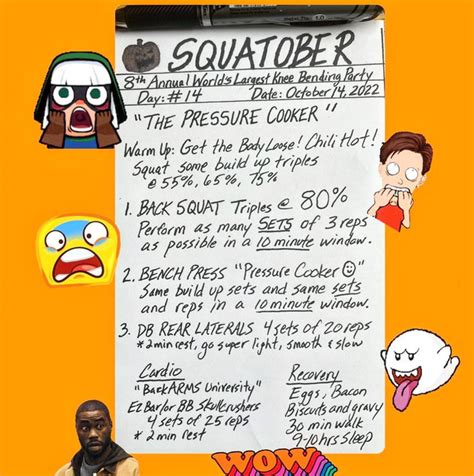 SQUATOBER
8th Annual World's Largest Knee Bending Party
Day: #14 Date: October 14, 2022
"THE PRESSURE COOKER"
Warm Up: Get the Body Loose! Chili Hot!
Squat some build up triples
@ 55%, 65%, 75%
1. BACK SQUAT Triples @ 80%
Perform as many SETS of 3 reps
as possible in a 10 minute window.
2. BENCH PRESS "Pressure Cooker ☺"
Same build up sets and same sets
and reps in a 10 minute window.
3. DB REAR LATERALS 4 sets of 20 reps
* 2 min rest, go super light, smooth & slow
Cardio
"BackARMS University"
Ez Bar/or BB Skullcrushers
4 sets of 25 reps
* 2 min rest
Recovery
Eggs, Bacon
Biscuits and gravy
30 min walk
9-10 hrs Sleep
WOW